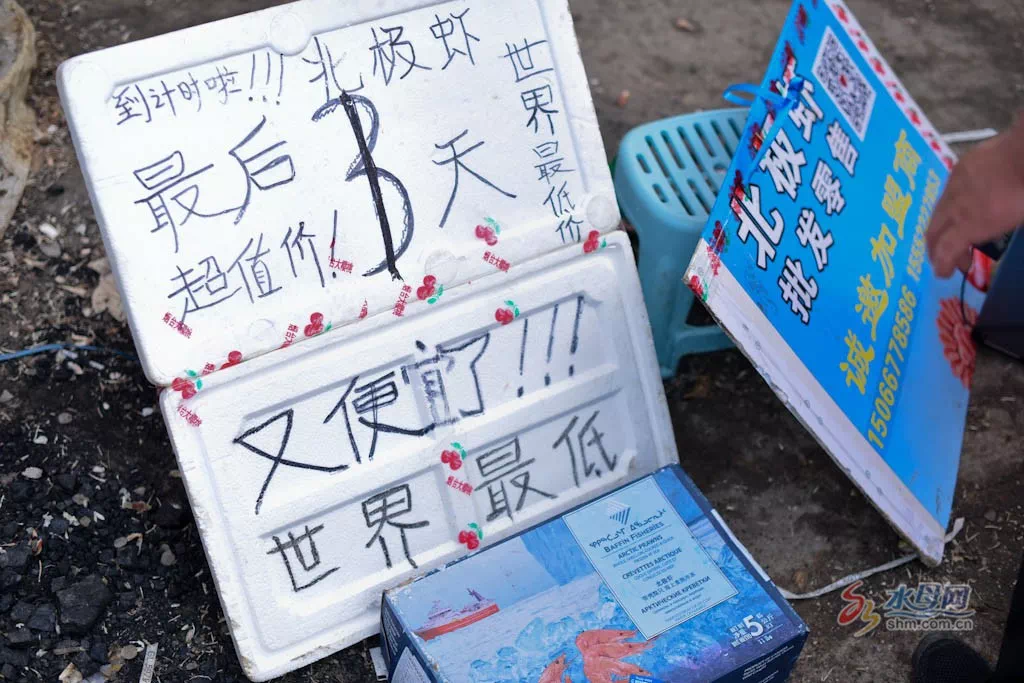 到计时啦!!! 北极虾
最后3天
超值价!
世界最低价
又便宜了!!!
世界最低
北极虾
批发零售
诚邀加盟商
15066778586
BAFFIN FISHERIES
ARCTIC PRAWNS
CREVETTES ARCTIQUE
北极虾
АРКТИЧЕСКИЕ КРЕВЕТКИ
5
水母网
shm.com.cn